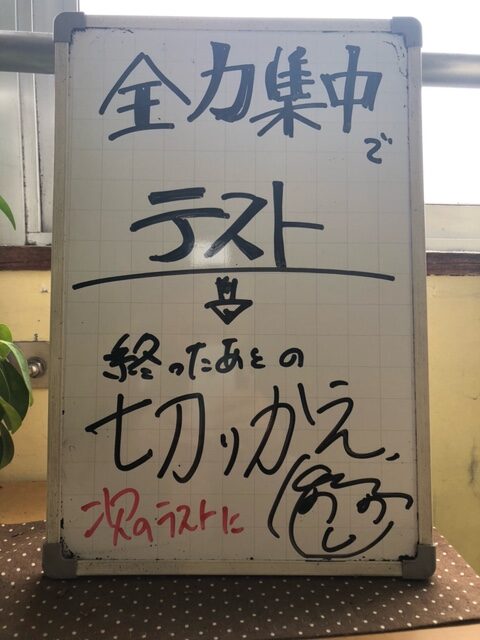 全力集中
で
テスト
終ったあとの
切りかえ、
次のテストに